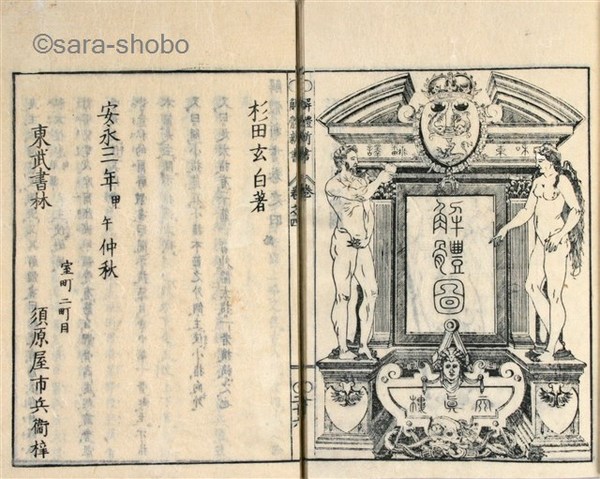 ©sara-shobo
解體圖
天真樓
解體新書
卷之四
杉田玄白著
安永三年甲午仲秋
室町二町目
東武書林 須原屋市兵衛梓